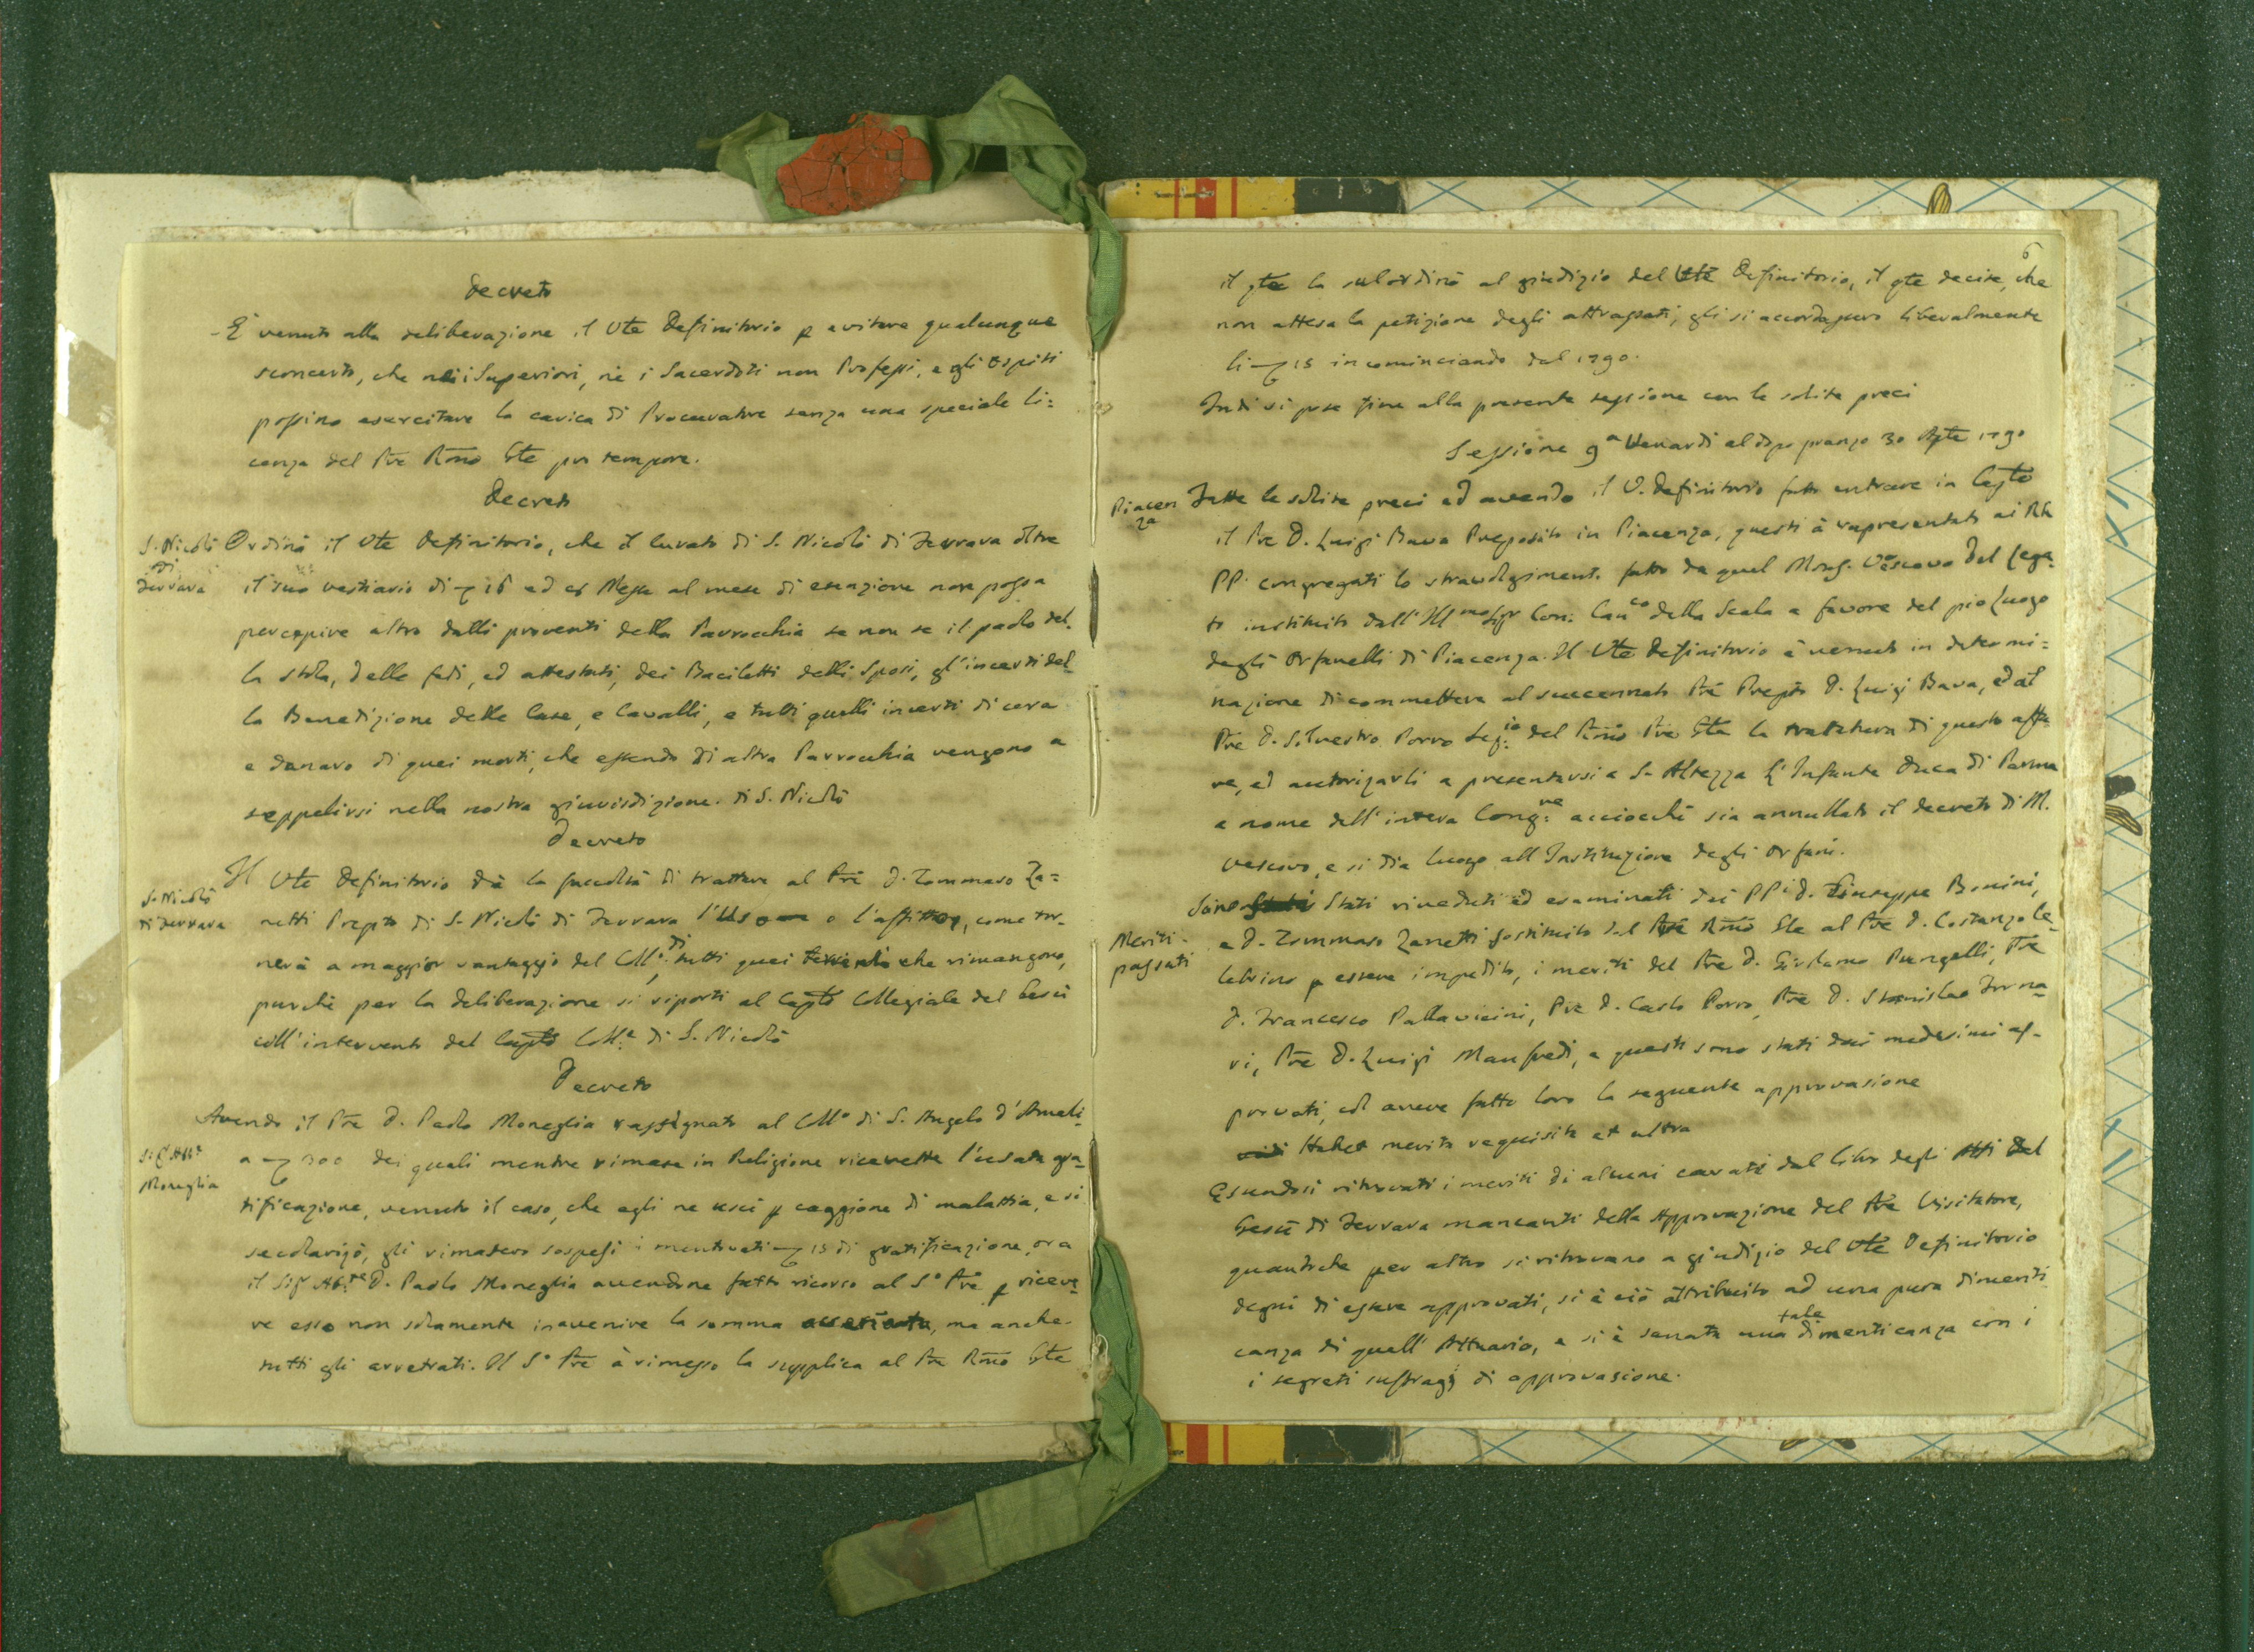 Decreto
È venuto alla deliberazione il Vte Definitorio p evitare qualunque
sconcerto, che nè i Superiori, nè i Sacerdoti non Professi, e gli Ospiti
possino esercitare la carica di Procuratore senza una speciale li=
cenza del Pre Rmo Gle pro tempore.
Decreto
S. Nicolò
di
Ferrara
Ordinò il Vte Definitorio, che il Curato di S. Nicolò di Ferrara oltre
il suo vestiario di 16 ed Messe al mese di esenzione non possa
percepire altro dalli proventi della Parrocchia se non se il paolo del-
la stola, delle fedi, ed attestati, dei Baciletti delli Sposi, gl'incerti del-
la Benedizione delle Case, e Cavalli, e tutti quelli incerti di cera
e danaro di quei morti, che essendo di altra Parrocchia vengono a
seppelirsi nella nostra giurisdizione. di S. Nicolò
Decreto
S. Nicolò
di Ferrara
Il Vte Definitorio dà la facoltà di trattare al Pre D. Tommaso Za=
netti Prepto di S. Nicolò di Ferrara l'Uso o l'affitto, come tor-
nerà a maggior vantaggio del Collo: di tutti quei che rimangono,
purchè per la deliberazione si riporti al Caplo Collegiale del Gesù
coll'intervento del Caplo Colle di S. Nicolò
Decreto
Sig Abte
Moneglia
Avendo il Pre D. Paolo Moneglia rassignato al Collo di S. Angelo d'Ameli-
a 300 dei quali mentre rimase in Religione ricevette l'usata gra-
tificazione, venuto il caso, che egli ne uscì p caggione di malattia, e si
secolarizò, gli rimasero sospesi i mentovati 15 di gratificazione, ora
il Sig Abte D. Paolo Moneglia avendone fatto ricorso al So Pre p riceve-
re esso non solamente inavenire la somma, ma anche
tutti gli arretrati. Il So Pre à rimesso la supplica al Pre Rmo Gle
6
il qle la subordinò al giudizio del Vte Definitorio, il qle decise, che
non attesa la petizione degli attrassati, gli si accordassero liberalmente
li 15 incominciando dal 1790.
Indi si pose fine alla presente sessione con le solite preci
Sessione 9a Venardì al dopo pranzo 30 Aple 1790
Piacen
za
Fatte le solite preci ed avendo il V. Definitorio fatto entrare in Caplo
il Pre D. Luigi Bava Preposito in Piacenza, questi à rapresentato ai RR
PP. congregati lo stravolgimento fatto da quel Monsg. Vescovo del Lega-
to instituito dall'Illmo Sigr Con: Canco della Scala a favore del pio Luogo
degli Orfanelli di Piacenza. Il Vte Definitorio è venuto in determi=
nazione di commettere al succennato Pre Prepto D. Luigi Bava, ed al
Pre D. Silvestro Porro Segio del Rmo Pre Gle la trattativa di questo affa-
re, ed autorizarli a presentarsi a S. Altezza L'Infante Duca di Parma
a nome dell'intera Congne acciocchè sia annullato il decreto di M.
Vescovo, e si dia luogo all Instituzione degli Orfani.
Meriti
passati
Sono Stati riveduti ed esaminati dai PPi D. Giuseppe Bonini,
e D. Tommaso Zanetti sostituito dal Pre Rmo Gle al Pre D. Costanzo Ce-
lebrino p essere impedito, i meriti del Pre D. Girolamo Pungelli, Pre
D. Francesco Pallavicini, Pre D. Carlo Porro, Pre D. Stanislao Forna-
ri, Pre D. Luigi Manfredi, e questi sono stati dai medesimi ap-
provati, col avere fatto loro la seguente approvasione
Habet merita requisita et ultra
Essendosi ritrovati i meriti di alcuni cavati dal libro degli Atti del
Gesù di Ferrara mancanti della Approvazione del Pre Visitatore,
quantoche per altro si ritrovano a giudizio del Vte Definitorio
degni di essere approvati, si è ciò attribuito ad una pura dimenti-
canza di quell'Attuario, e si è sanata una tale dimenticanza con i
i segreti suffragj di approvasione.